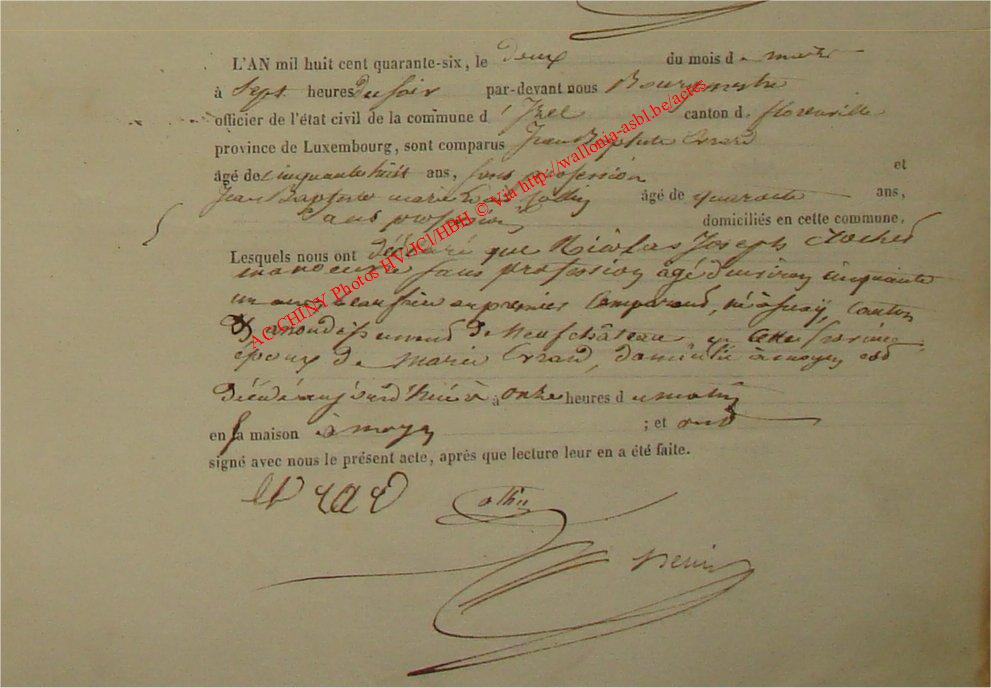 L'AN mil huit cent quarante-six, le deux du mois de mars
à Sept heures du soir par-devant nous Bourgmestre
officier de l'état civil de la commune d'Izel canton de florenville
province de Luxembourg, sont comparus Jean Baptiste Errard
âgé de cinquante huit ans, sans profession et
Jean Baptiste marie âgé de quarante ans,
sans profession domiciliés en cette commune.
Lesquels nous ont déclaré que Nicolas Joseph Clochet
sans profession âgé d'environ cinquante
un ans beau frère au premier Comparant, né à Suxy, Canton
& arrondissement de Neufchâteau en cette province
époux de Marie Errard, domicilié à moyen est
décédé aujourd'hui à onze heures du matin
en sa maison à moyen ; et ont
signé avec nous le présent acte, après que lecture leur en a été faite.
Errard
ACCHINY Photos HV-JCl/HBH © Via http://wallonia-asbl.be/actes